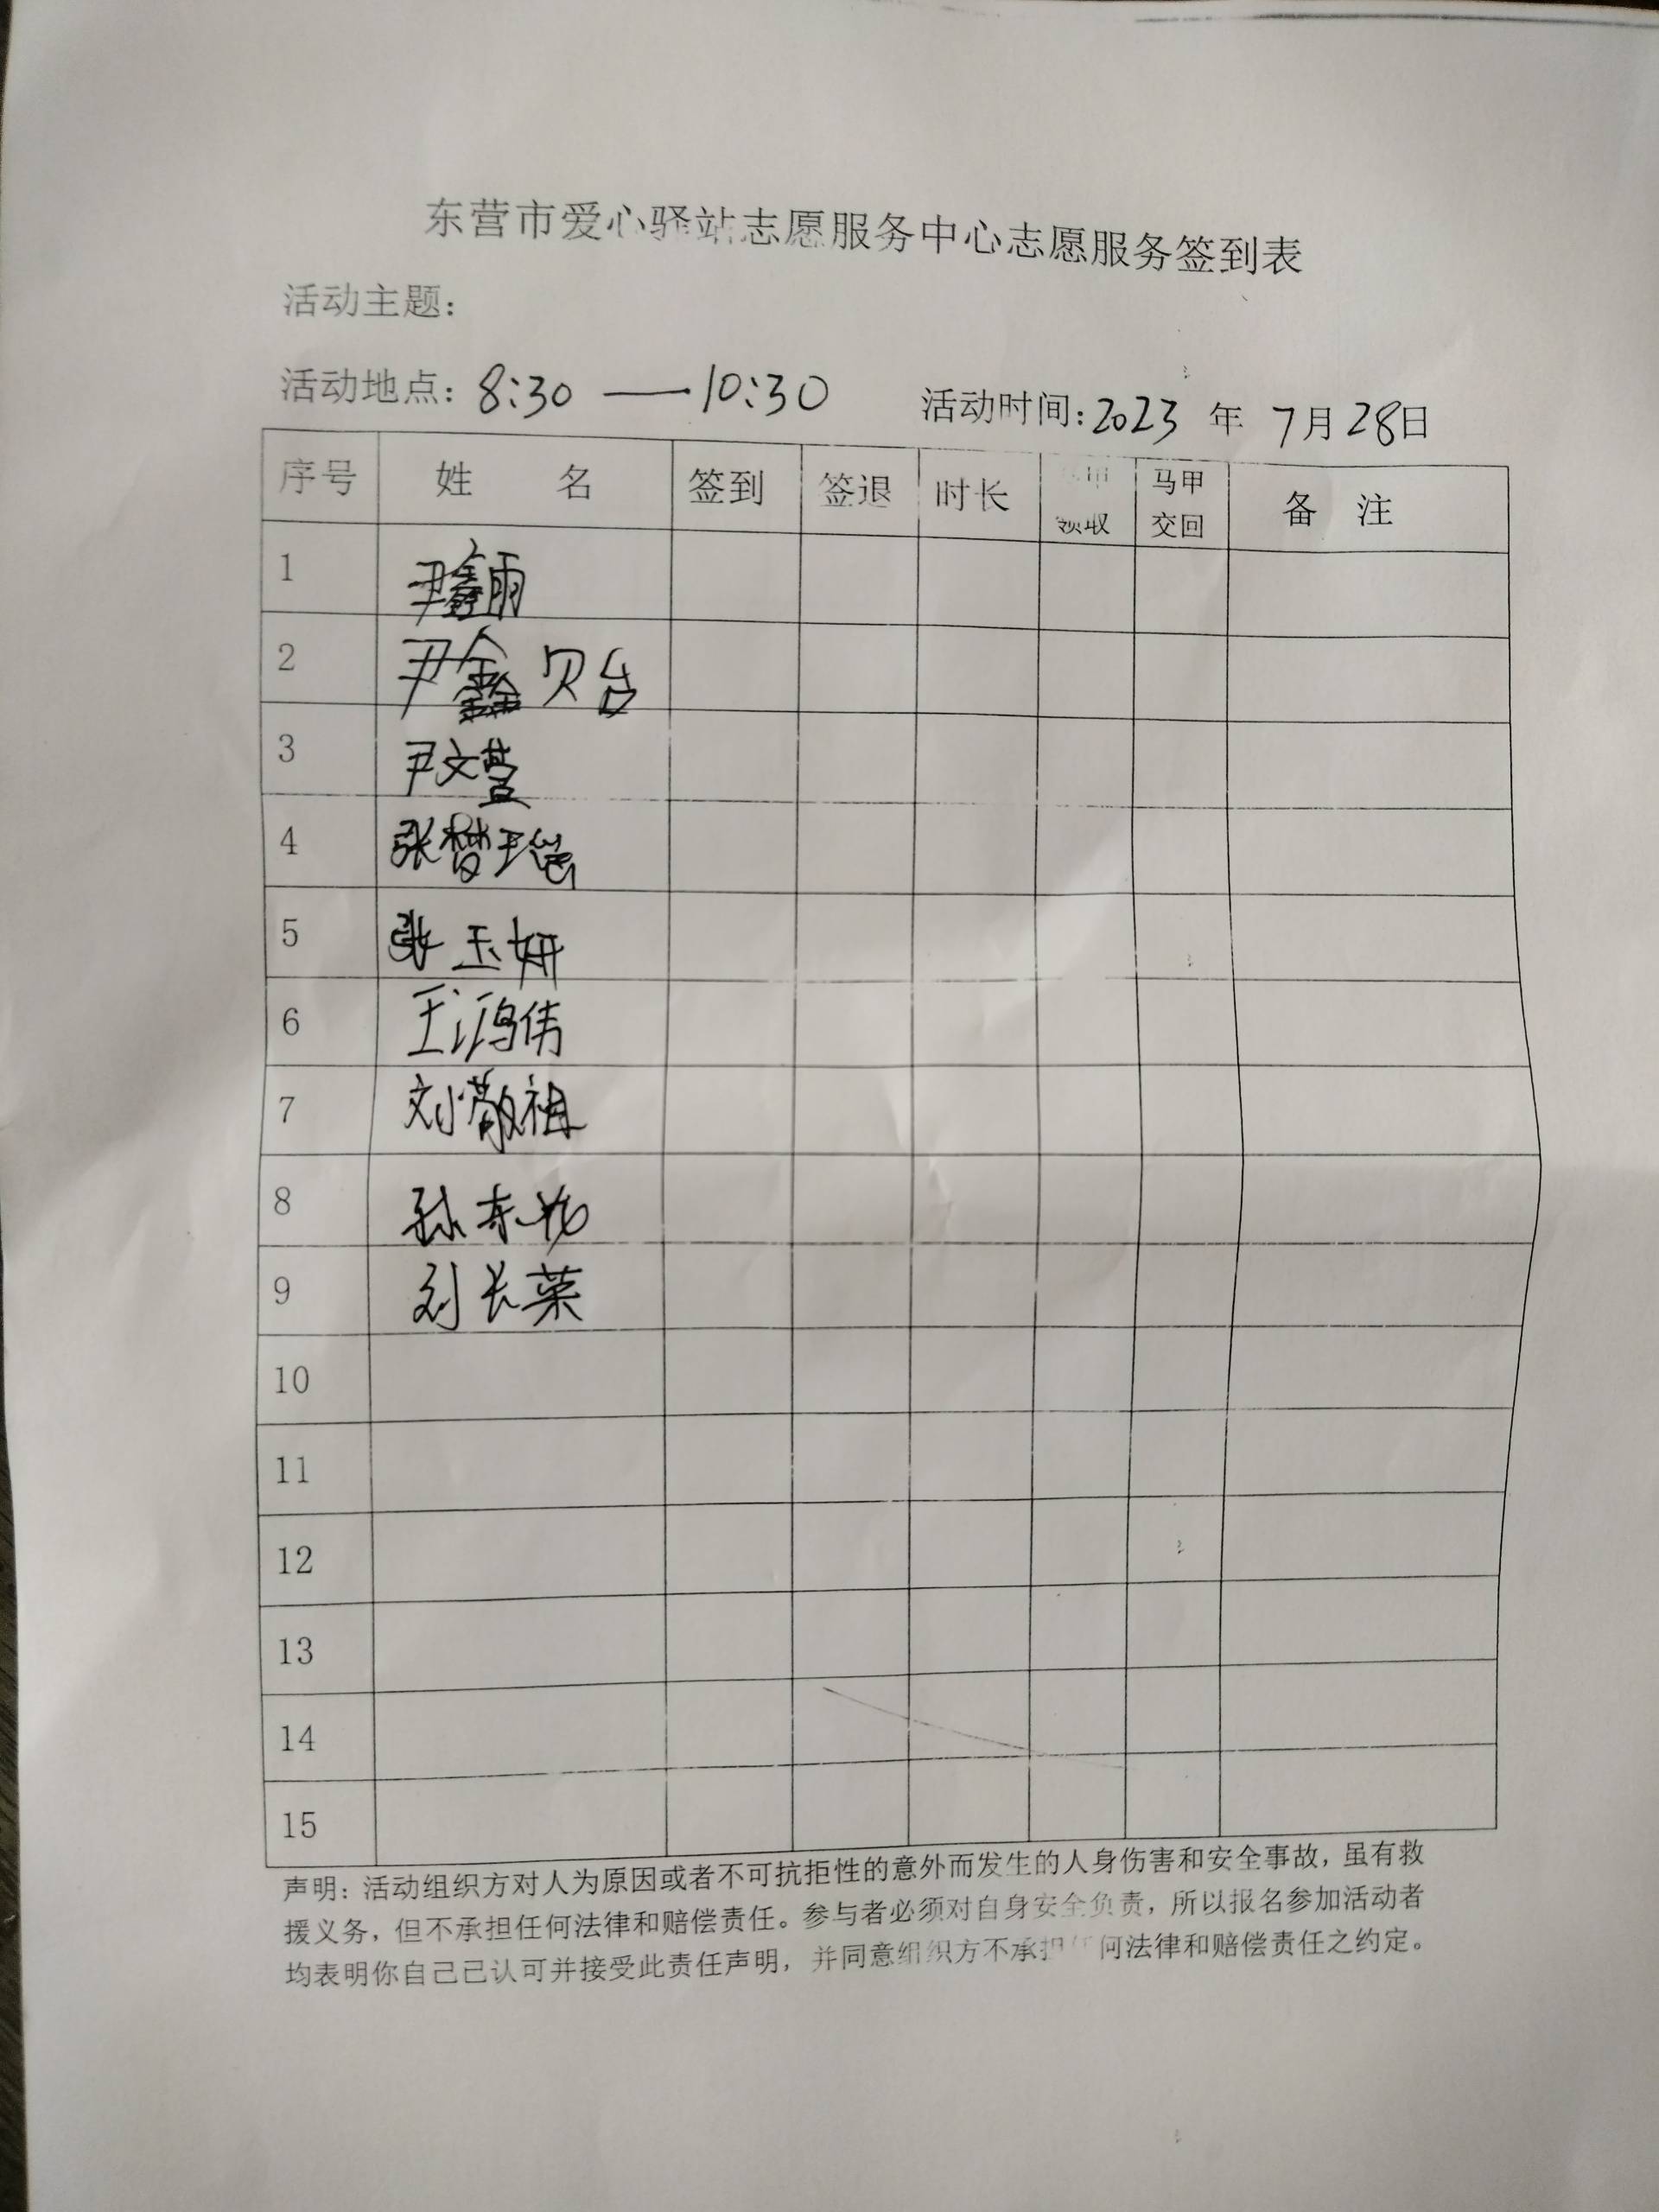 东营市爱心驿站志愿服务中心志愿服务签到表
活动主题：
活动地点：8:30 —10:30 活动时间：2023 年 7月28日
序号 姓 名 签到 签退 时长 马甲领取 马甲交回 备 注
1 尹鑫雨
2 尹鑫贻
3 尹文萱
4 张梦瑶
5 张玉妍
6 王鸿伟
7 刘敬祖
8 孙东
9 刘长荣
10
11
12
13
14
15
声明：活动组织方对人为原因或者不可抗拒性的意外而发生的人身伤害和安全事故，虽有救
援义务，但不承担任何法律和赔偿责任。参与者必须对自身安全负责，所以报名参加活动者
均表明你自己已认可并接受此责任声明，并同意组织方不承担任何法律和赔偿责任之约定。